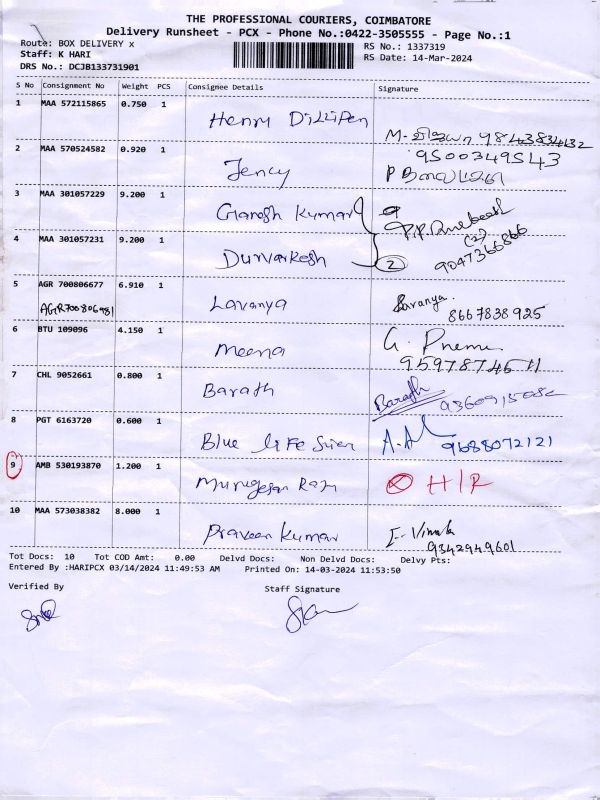 THE PROFESSIONAL COURIERS, COIMBATORE
Delivery Runsheet - PCX - Phone No.:0422-3505555 - Page No.:1
Route: BOX DELIVERY x
RS No.: 1337319
Staff: K HARI
RS Date: 14-Mar-2024
DRS No.: DCJB133731901
S No Consignment No Weight PCS Consignee Details Signature
1 MAA 572115865 0.750 1 Henry Dillipen
9843834132
2 MAA 570524582 0.920 1 Jency 9500349543
3 MAA 301057229 9.200 1 Ganesh Kumar
(2)
4 MAA 301057231 9.200 1 Durvarkesh 2 9047366866
5 AGR 700806677 6.910 1 Lavanya Saranya.
AGR700806981 8667838925
6 BTU 109096 4.150 1 Meena G. Prema
9597874611
7 CHL 9052661 0.800 1 Barath Barath
8 PGT 6163720 0.600 1 Blue life 9688072121
9 AMB 530193870 1.200 1 Murugesan Raju H/R
10 MAA 573038382 8.000 1 Praveen Kumar
9342949601
Tot Docs: 10 Tot COD Amt: 0.00 Delvd Docs: Non Delvd Docs: Delvy Pts:
Entered By :HARIPCX 03/14/2024 11:49:53 AM Printed On: 14-03-2024 11:53:50
Verified By Staff Signature